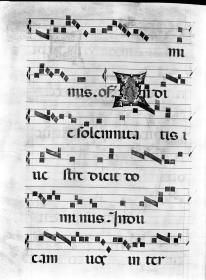 mi
nus. of. In di
e solemnita tis i
uc stre dicit do
mi nus. Indu
cam uos in ter